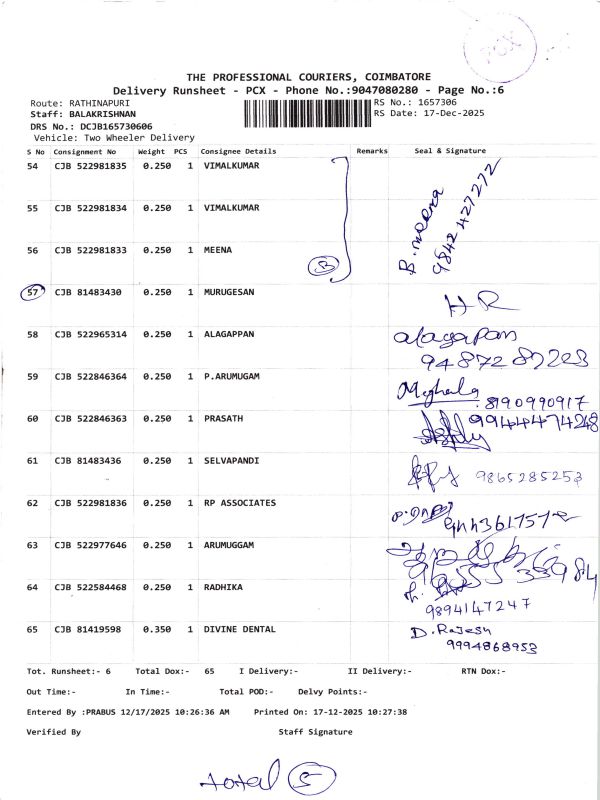 PCX
THE PROFESSIONAL COURIERS, COIMBATORE
Delivery Runsheet - PCX - Phone No.:9047080280 - Page No.:6
Route: RATHINAPURI
RS No.: 1657306
Staff: BALAKRISHNAN
RS Date: 17-Dec-2025
DRS No.: DCJB165730606
Vehicle: Two Wheeler Delivery
S No Consignment No Weight PCS Consignee Details Remarks Seal & Signature
54 CJB 522981835 0.250 1 VIMALKUMAR
55 CJB 522981834 0.250 1 VIMALKUMAR
56 CJB 522981833 0.250 1 MEENA
B. meena
9842 427272
57 CJB 81483430 0.250 1 MURUGESAN
HR
58 CJB 522965314 0.250 1 ALAGAPPAN alagapan
59 CJB 522846364 0.250 1 P.ARUMUGAM 8190990917
60 CJB 522846363 0.250 1 PRASATH
61 CJB 81483436 0.250 1 SELVAPANDI 9865285253
62 CJB 522981836 0.250 1 RP ASSOCIATES
63 CJB 522977646 0.250 1 ARUMUGGAM
64 CJB 522584468 0.250 1 RADHIKA
9894147247
65 CJB 81419598 0.350 1 DIVINE DENTAL D. Rajesh
9994868953
Tot. Runsheet:- 6 Total Dox:- 65 I Delivery:- II Delivery:- RTN Dox:-
Out Time:- In Time:- Total POD:- Delvy Points:-
Entered By :PRABUS 12/17/2025 10:26:36 AM Printed On: 17-12-2025 10:27:38
Verified By Staff Signature
total 5